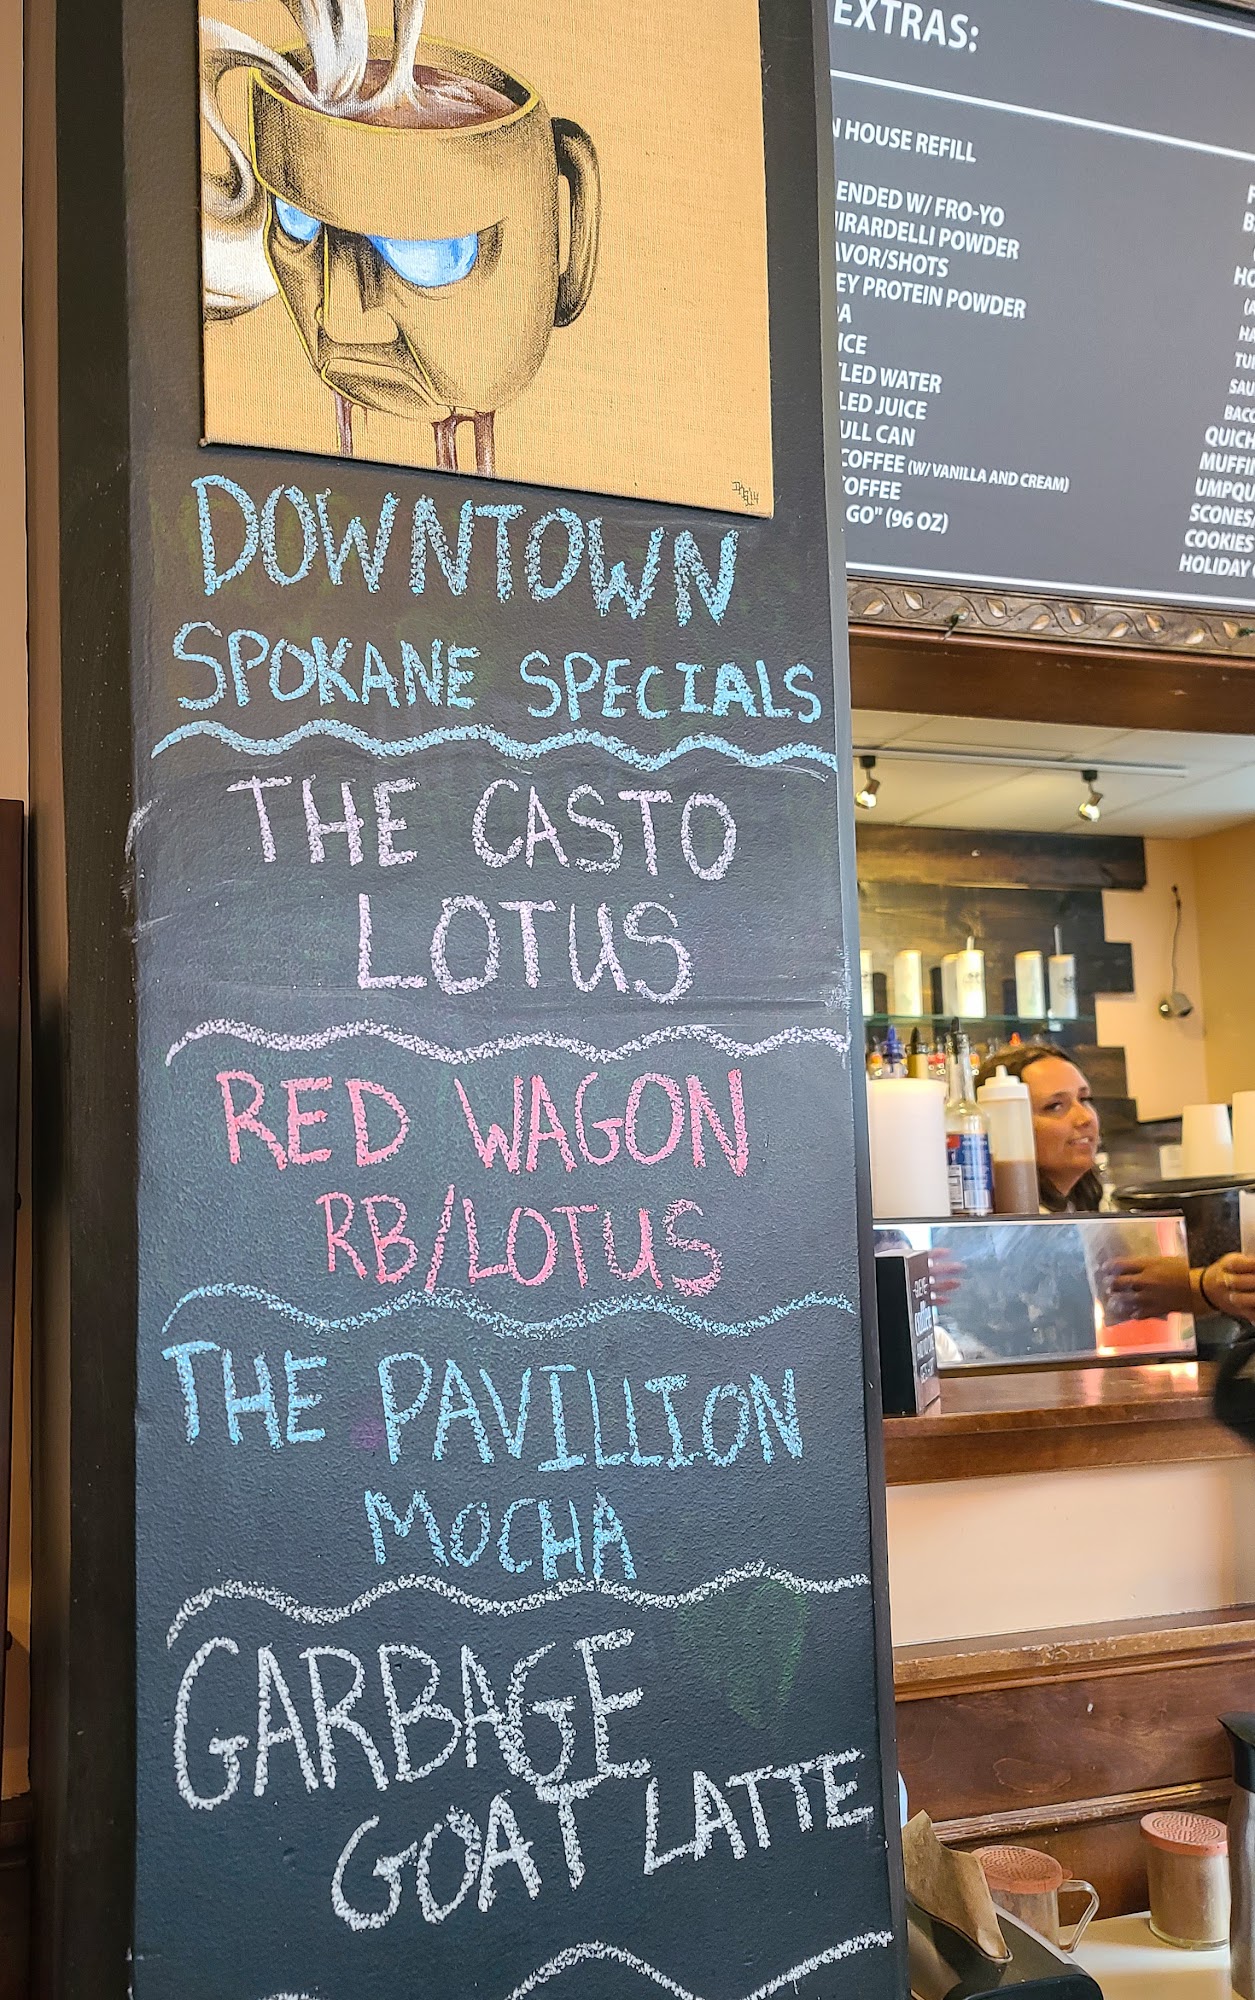 DOWNTOWN
SPOKANE SPECIALS
THE CASTO
LOTUS
RED WAGON
RB/LOTUS
THE PAVILLION
MOCHA
GARBAGE
GOAT LATTE
EXTRAS:
N HOUSE REFILL
ENDED W/ FRO-YO
IRARDELLI POWDER
AVOR/SHOTS
EY PROTEIN POWDER
RA
ICE
TLED WATER
LED JUICE
ULL CAN
COFFEE (W/ VANILLA AND CREAM)
OFFEE
GO" (96 OZ)
HO
HA
TU
SAU
BACO
QUICH
MUFFI
UMPQU
SCONES
COOKIES
HOLIDAY